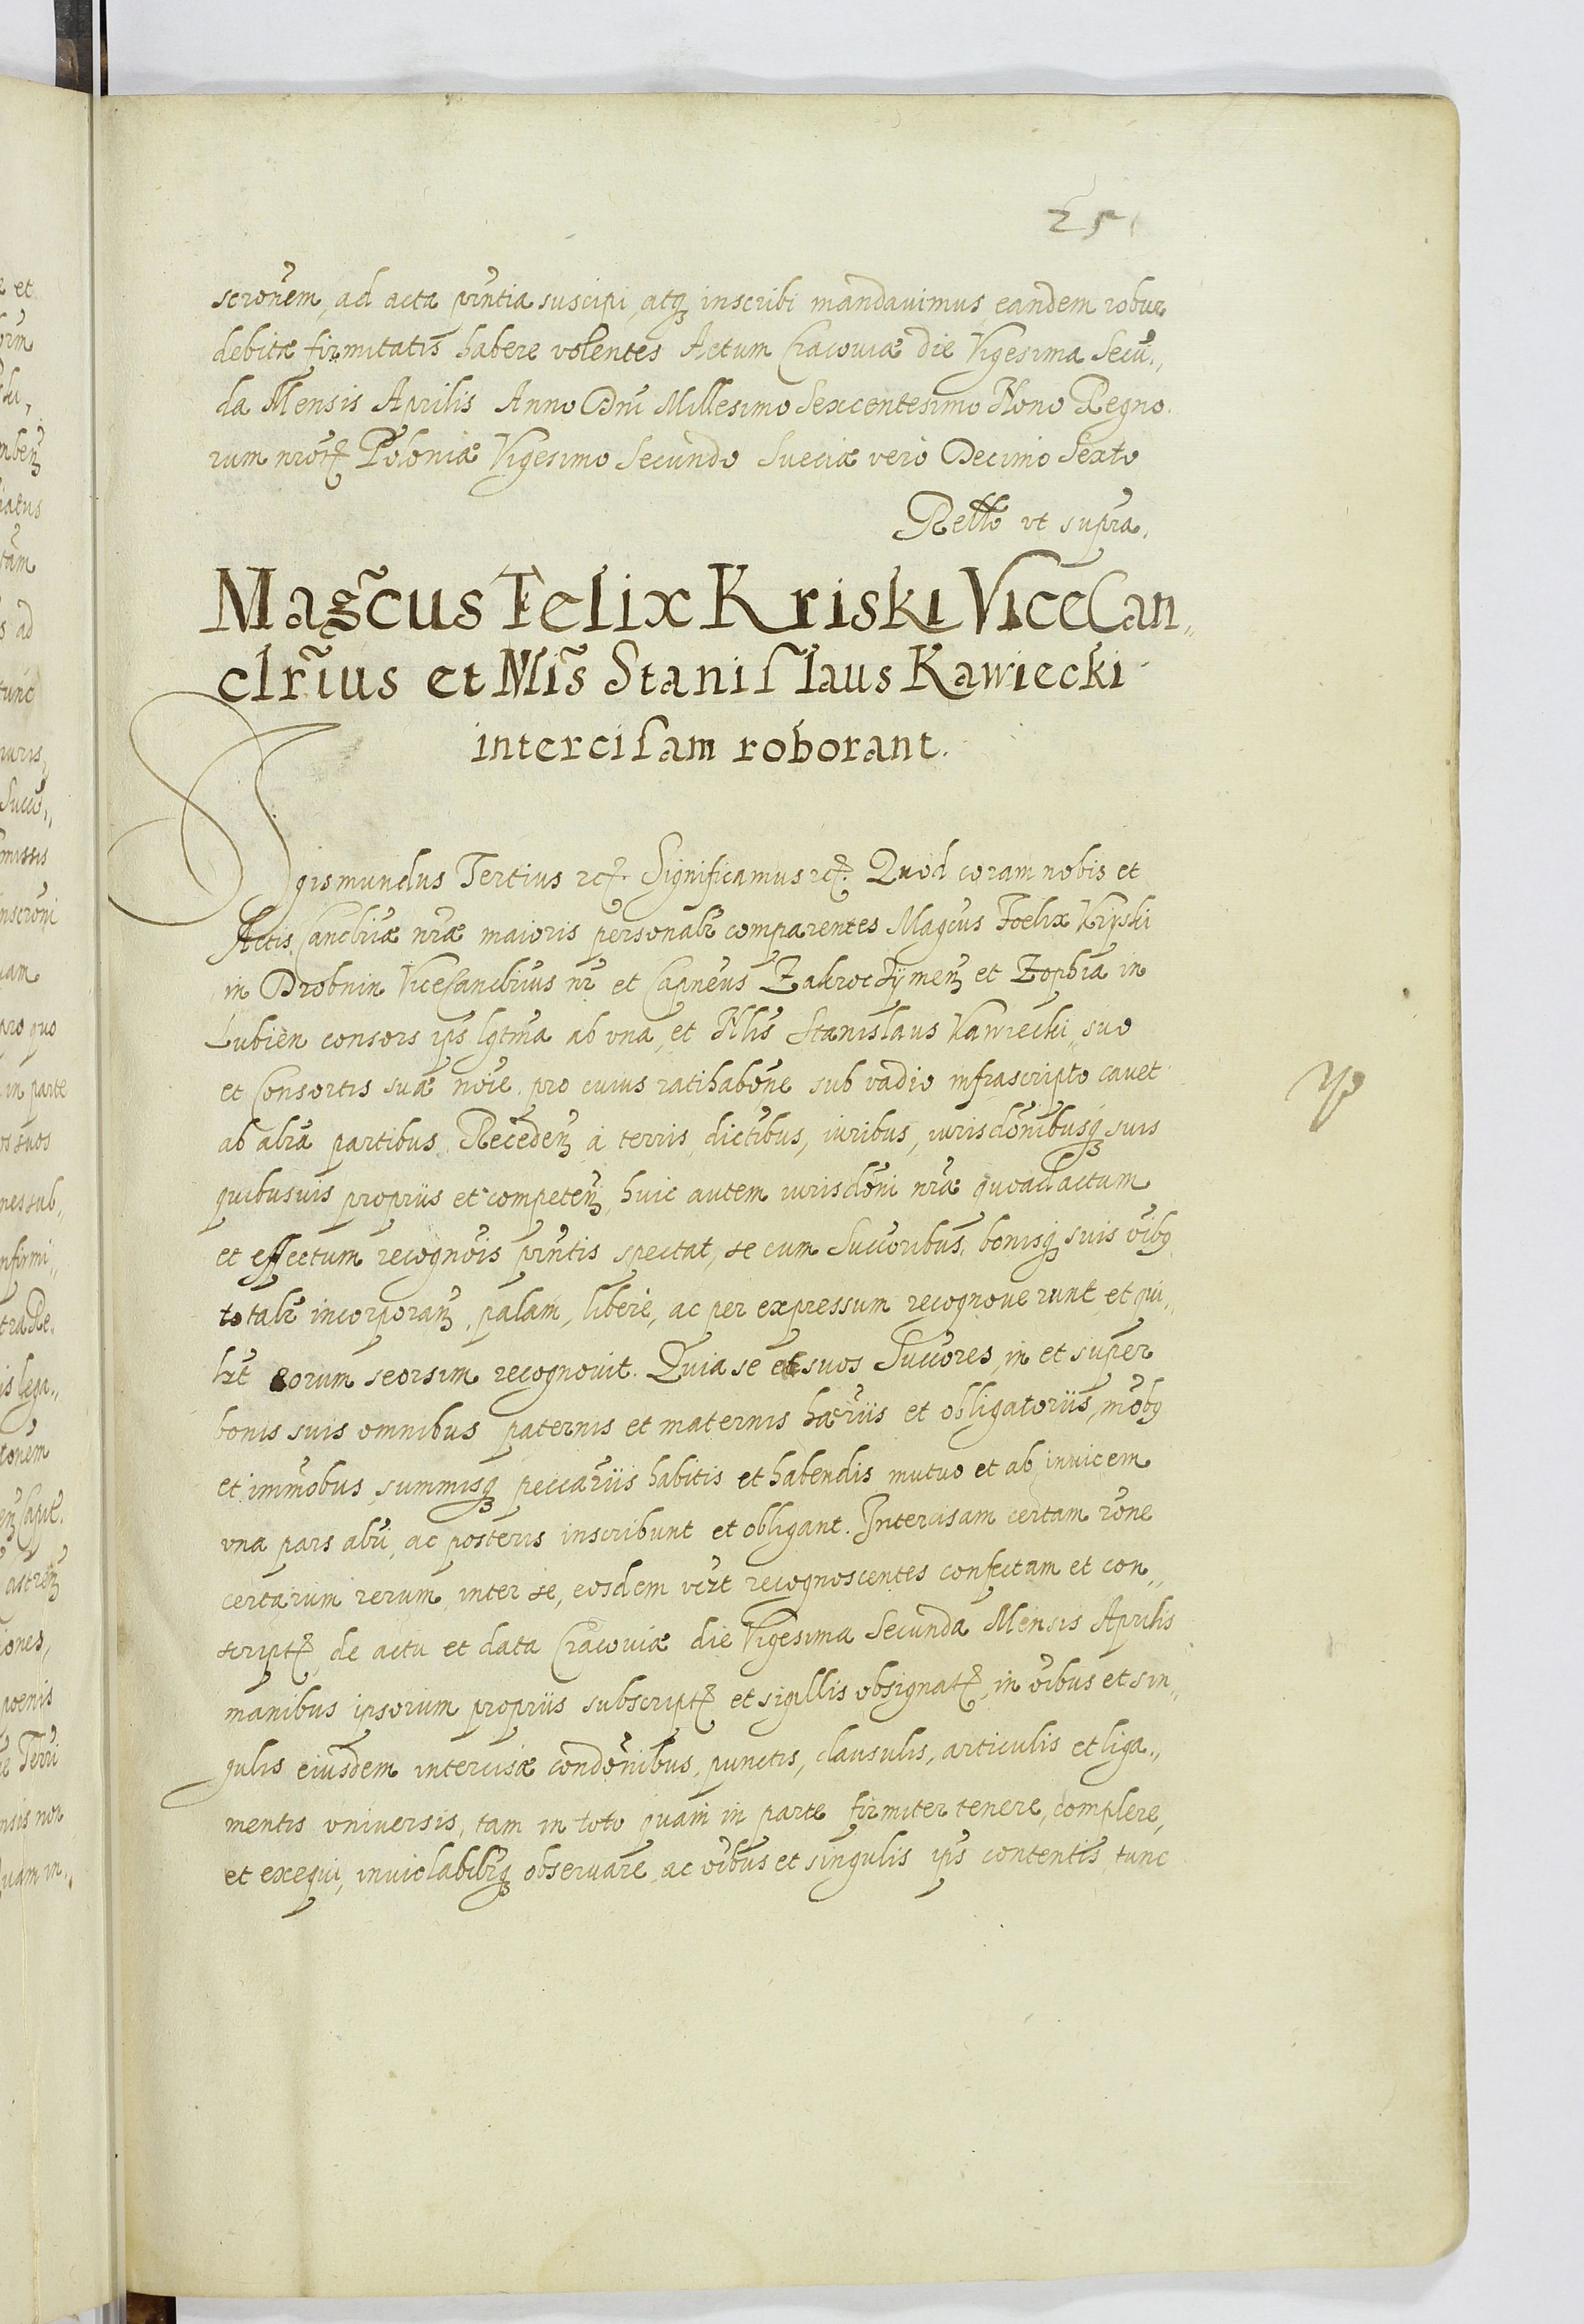 251
scrōnem, ad acta prntia suscipi, atq̃ inscribi mandavimus, eandem robur
debitæ firmitatis habere volentes Actum Cracoviæ die Vigesima Secū„
da Mensis Aprilis Anno Dnī Millesimo Sexcentesimo Nono Regno„
rum nrorꝝ Poloniæ Vigesimo Secundo Sueciæ vero Decimo Sexto
Rello vt supra.
Magc̃us Felix Kriski ViceCan„
clrius et Mīs Staniſlaus Kawiecki
interciſam roborant.
Sigismundus Tertius rcꝭ. Significamus rcꝭ. Quod coram nobis et
Actis Cancllriæ nræ maioris personalr comparentes Magcus Foelix Krÿski
in Drobnin ViceCancllrius nr et Capneus Zakroczÿmeñ et Zophia in
Lubień consors ips lgtma ab vna, et Mlis Stanislaus Kawiecki, suo
et Consortis suæ noie, pro cuius ratihabōne sub vadio infrascripto cavet
ab alia partibus. Recedeñ à terris, dictibus, iuribus, iurisdōnibusq̃ suis
quibusuis propriis et competeñ, huic autem iurisdōni nræ quoad actum
et effectum recognōis prntis spectat, se cum Succoribus, bonisq̃ suis oībꝰ
totalr incorporañ, palam, libere, ac per expressum recognoverunt et qui„
lꝫt eorum seorsim recognovit. Quia se et suos Succores, in et super
bonis suis omnibus paternis et maternis hæriis et obligatoriis, mobꝰ
et immobus, summisq̃ peccariis habitis et habendis mutuo et ab invicem
vna pars alij, ac posteris inscribunt et obligant. Intercisam certam rōne
certarum rerum, inter se, eosdem vcꝫt recognoscentes confectam et con„
scriptꝭ, de actu et data Cracoviæ die Vigesima Secunda Mensis Aprilis
manibus ipsorum propriis subscriptꝭ et sigillis obsignatꝭ, in oibus et sin„
gulis eiusdem intercisæ condōnibus, punctis, clausulis, articulis et liga„
mentis vniversis, tam in toto quam in parte firmiter tenere, complere,
et exequi, inviolabilrq̃ observare, ac oibus et singulis ips contentis, tunc